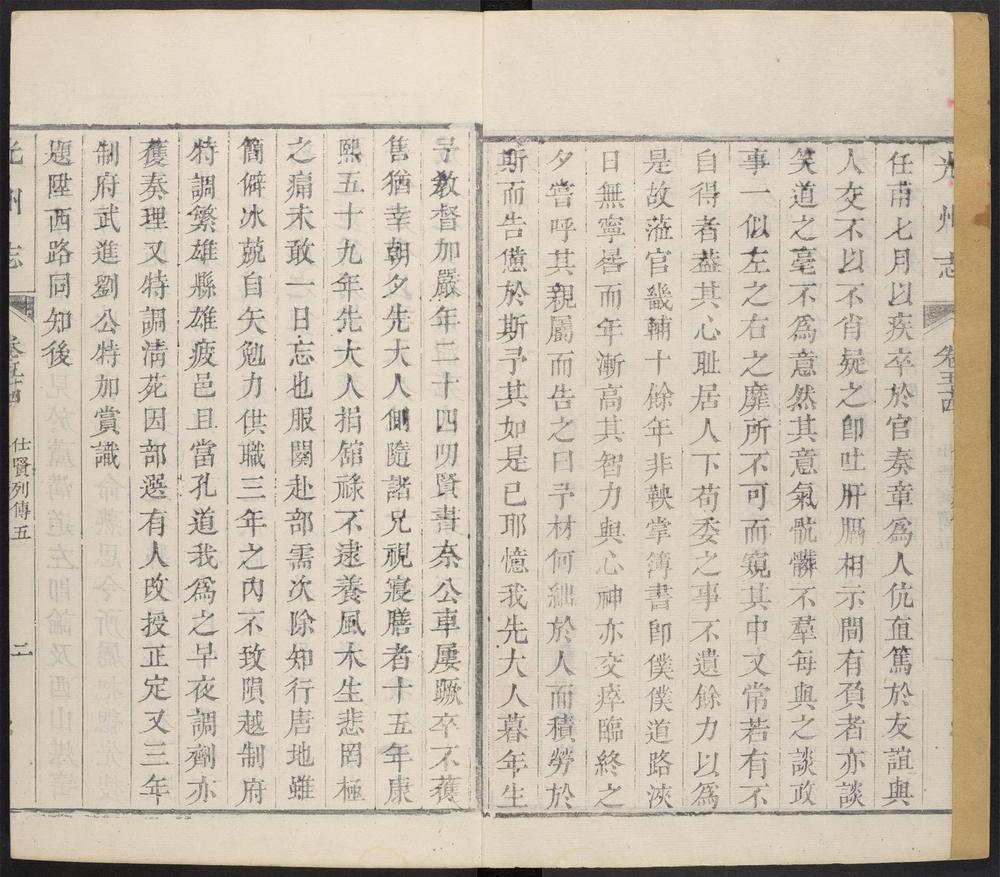 光州志 卷五十四
任甫七月以疾卒於官奏章爲人伉直篤於友誼與
人交不以不肖疑之卽吐肝膈相示間有負者亦談
笑道之毫不爲意然其意氣骯髒不羣每與之談政
事一似左之右之靡所不可而窺其中又常若有不
自得者葢其心耻居人下苟委之事不遺餘力以爲
是故涖官畿輔十餘年非鞅掌簿書卽僕僕道路浹
日無寧晷而年漸高其智力與心神亦交瘁臨終之
夕嘗呼其親屬而告之曰予材何絀於人而積勞於
斯而告憊於斯予其如是已耶憶我先大人暮年生
予敎督加嚴年二十四叨賢書奈公車屢蹶卒不獲
售猶幸朝夕先大人側隨諸兄視寢膳者十五年康
熙五十九年先大人捐館祿不逮養風木生悲罔極
之痛未敢一日忘也服闋赴部需次除知行唐地雖
簡僻冰兢自矢勉力供職三年之內不致隕越制府
特調繁雄縣雄疲邑且當孔道我爲之早夜調劑亦
獲奏理又特調淸苑因部選有人改授正定又三年
制府武進劉公特加賞識
題陞西路同知後
光州志 卷五十四 仕賢列傳五 二